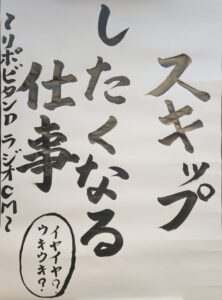 スキップ
したくなる
仕事
～リポビタンD ラジオCM～
イヤイヤ？
ウキウキ？